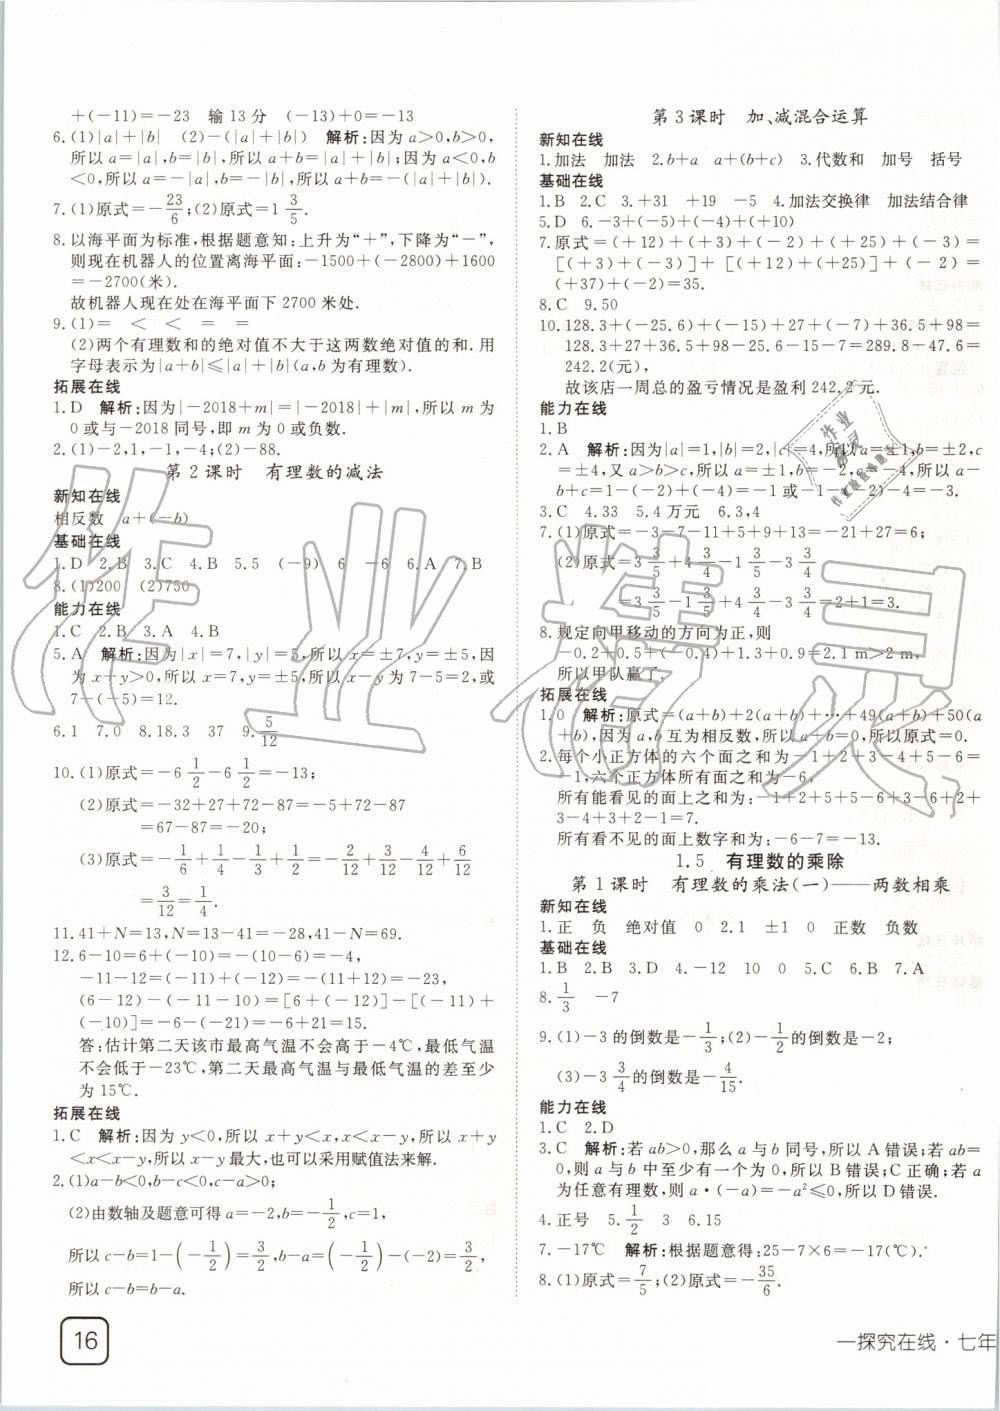 +(-11)=-23　输 13 分　(-13)+0=-13
6.(1)|a|+|b|　(2)-(|a|+|b|)　解析:因为 a>0,b>0,
所以 a=|a|,b=|b|,所以 a+b=|a|+|b|;因为 a<0,b
<0,所以 a=-|a|,b=-|b|,所以 a+b=-(|a|+|b|).
7.(1)原式=-23/6;(2)原式=1 3/5.
8.以海平面为标准,根据题意知:上升为“+”,下降为“-”,
则现在机器人的位置离海平面:-1500+(-2800)+1600
=-2700(米).
故机器人现在处在海平面下 2700 米处.
9.(1)=　<　<　=　=
(2)两个有理数和的绝对值不大于这两数绝对值的和.用
字母表示为|a+b|≤|a|+|b|(a,b为有理数).
拓展在线
1.D　解析:因为|-2018+m|=|-2018|+|m|,所以 m 为
0 或与-2018 同号,即 m 为 0 或负数.
2.(1)-2,1,-1,-4;(2)-88.
第 2 课时　有理数的减法
新知在线
相反数　a+(-b)
基础在线
1.D　2.B　3.C　4.B　5.5　(-9)　6　-6　6.A　7.B
8.(1)200　(2)750
能力在线
1.C　2.B　3.A　4.B
5.A　解析:因为|x|=7,|y|=5,所以 x=±7,y=±5,因
为 x+y>0,所以 x=7,y=±5,所以 x-y 为 7-5=2,或
7-(-5)=12.
6.1　7.0　8.18.3　37　9.5/12
10.(1)原式=-6 1/2-6 1/2=-13;
(2)原式=-32+27+72-87=-5+72-87
=67-87=-20;
(3)原式=-1/6+1/4-1/3+1/2=-2/12+3/12-4/12+6/12
=3/12=1/4.
11.41+N=13,N=13-41=-28,41-N=69.
12.6-10=6+(-10)=-(10-6)=-4,
-11-12=(-11)+(-12)=-(11+12)=-23,
(6-12)-(-11-10)=[6+(-12)]-[(-11)+
(-10)]=-6-(-21)=-6+21=15.
答:估计第二天该市最高气温不会高于-4℃,最低气温
不会低于-23℃,第二天最高气温与最低气温的差至少
为 15℃.
拓展在线
1.C　解析:因为 y<0,所以 x+y<x,x<x-y,所以 x+y
<x<x-y,所以 x-y 最大,也可以采用赋值法来解.
2.(1)a-b<0,b-c<0,c-a>0;
(2)由数轴及题意可得 a=-2,b=-1/2,c=1,
所以 c-b=1-(-1/2)=3/2,b-a=-1/2-(-2)=3/2,
所以 c-b=b-a.
16
第 3 课时　加、减混合运算
新知在线
1.加法　加法　2.b+a　a+(b+c)　3.代数和　加号　括号
基础在线
1.B　2.C　3.+31　+19　-5　4.加法交换律　加法结合律
5.D　6.-3+(-5)+(-4)+(+10)
7.原式=(+12)+(+3)+(-2)+(+25)+(-3)=
[(+3)+(-3)]+[(+12)+(+25)]+(-2)=
(+37)+(-2)=35.
8.C　9.50
10.128.3+(-25.6)+(-15)+27+(-7)+36.5+98=
128.3+27+36.5+98-25.6-15-7=289.8-47.6=
242.2(元),
故该店一周总的盈亏情况是盈利 242.2 元.
能力在线
1.B
2.A　解析:因为|a|=1,|b|=2,|c|=4,所以a=±1,b=±2,
c=±4,又 a>b>c,所以 a=±1,b=-2,c=-4,所以 a-
b+c=1-(-2)+(-4)=-1 或-1-(-2)+(-4)=-3.
3.C　4.33　5.4 万元　6.3,4
7.(1)原式=-3-7-11+5+9+13=-21+27=6;
(2)原式=3 3/5+4 3/4-1 3/5-3 3/4
=3 3/5-1 3/5+4 3/4-3 3/4=2+1=3.
8.规定向甲移动的方向为正,则
-0.2+0.5+(-0.4)+1.3+0.9=2.1 m>2 m,
所以甲队赢了.
拓展在线
1.0　解析:原式=(a+b)+2(a+b)+…+49(a+b)+50(a
+b),因为a,b互为相反数,所以a+b=0,所以原式=0.
2.每个小正方体的六个面之和为-1+2+3-4+5-6=
-1,六个正方体所有面之和为-6,
所有能看见的面上之和为:-1+2+5+5-6-3+6+2+
3-4+3+2-1=7.
所有看不见的面上数字和为:-6-7=-13.
1.5　有理数的乘除
第 1 课时　有理数的乘法(一)——两数相乘
新知在线
1.正　负　绝对值　0　2.1　±1　0　正数　负数
基础在线
1.B　2.B　3.D　4.-12　10　0　5.C　6.B　7.A
8.1/3　-7
9.(1)-3 的倒数是-1/3;(2)-1/2的倒数是-2;
(3)-3 3/4的倒数是-4/15.
能力在线
1.C　2.D
3.C　解析:若 ab>0,那么 a 与 b 同号,所以 A 错误;若 ab=
0,则 a 与 b 中至少有一个为 0,所以 B 错误;C 正确;若 a
为任意有理数,则 a·(-a)=-a²≤0,所以 D 错误.
4.正号　5.1/2　3　6.15
7.-17℃　解析:根据题意得:25-7×6=-17(℃).
8.(1)原式=7/5;(2)原式=-35/6.
一探究在线·七年
作业精灵